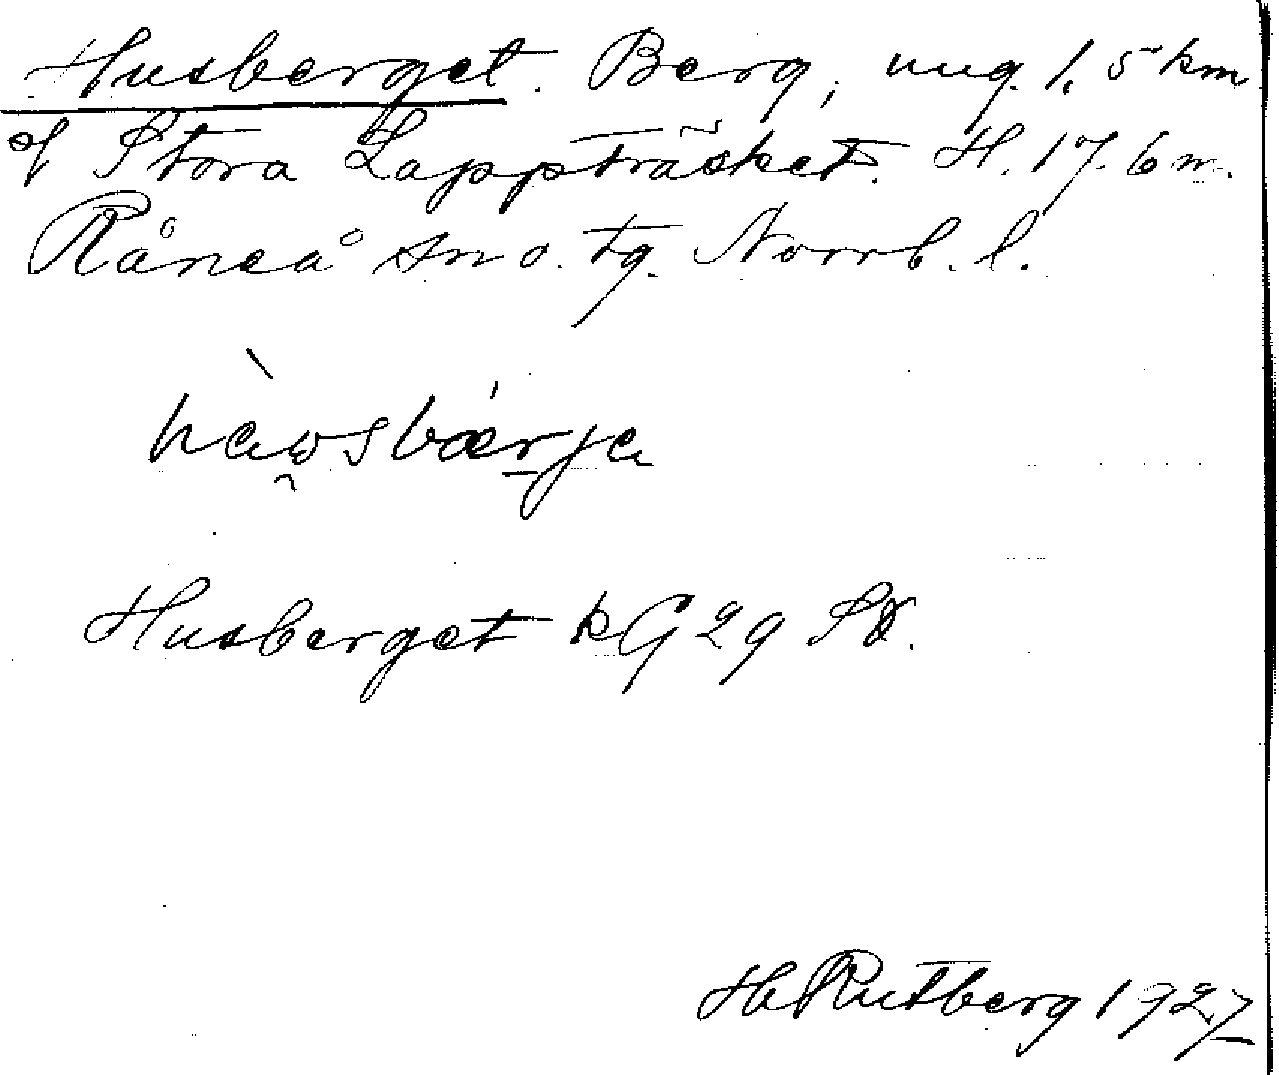 Husberget. Berg, ung. 1,5 km
of Stora Lappträsket. H. 17.6 m.
Råneå sn o. tg. Norrb. l.
Husberget kG29 SX.
H Rutberg 1927